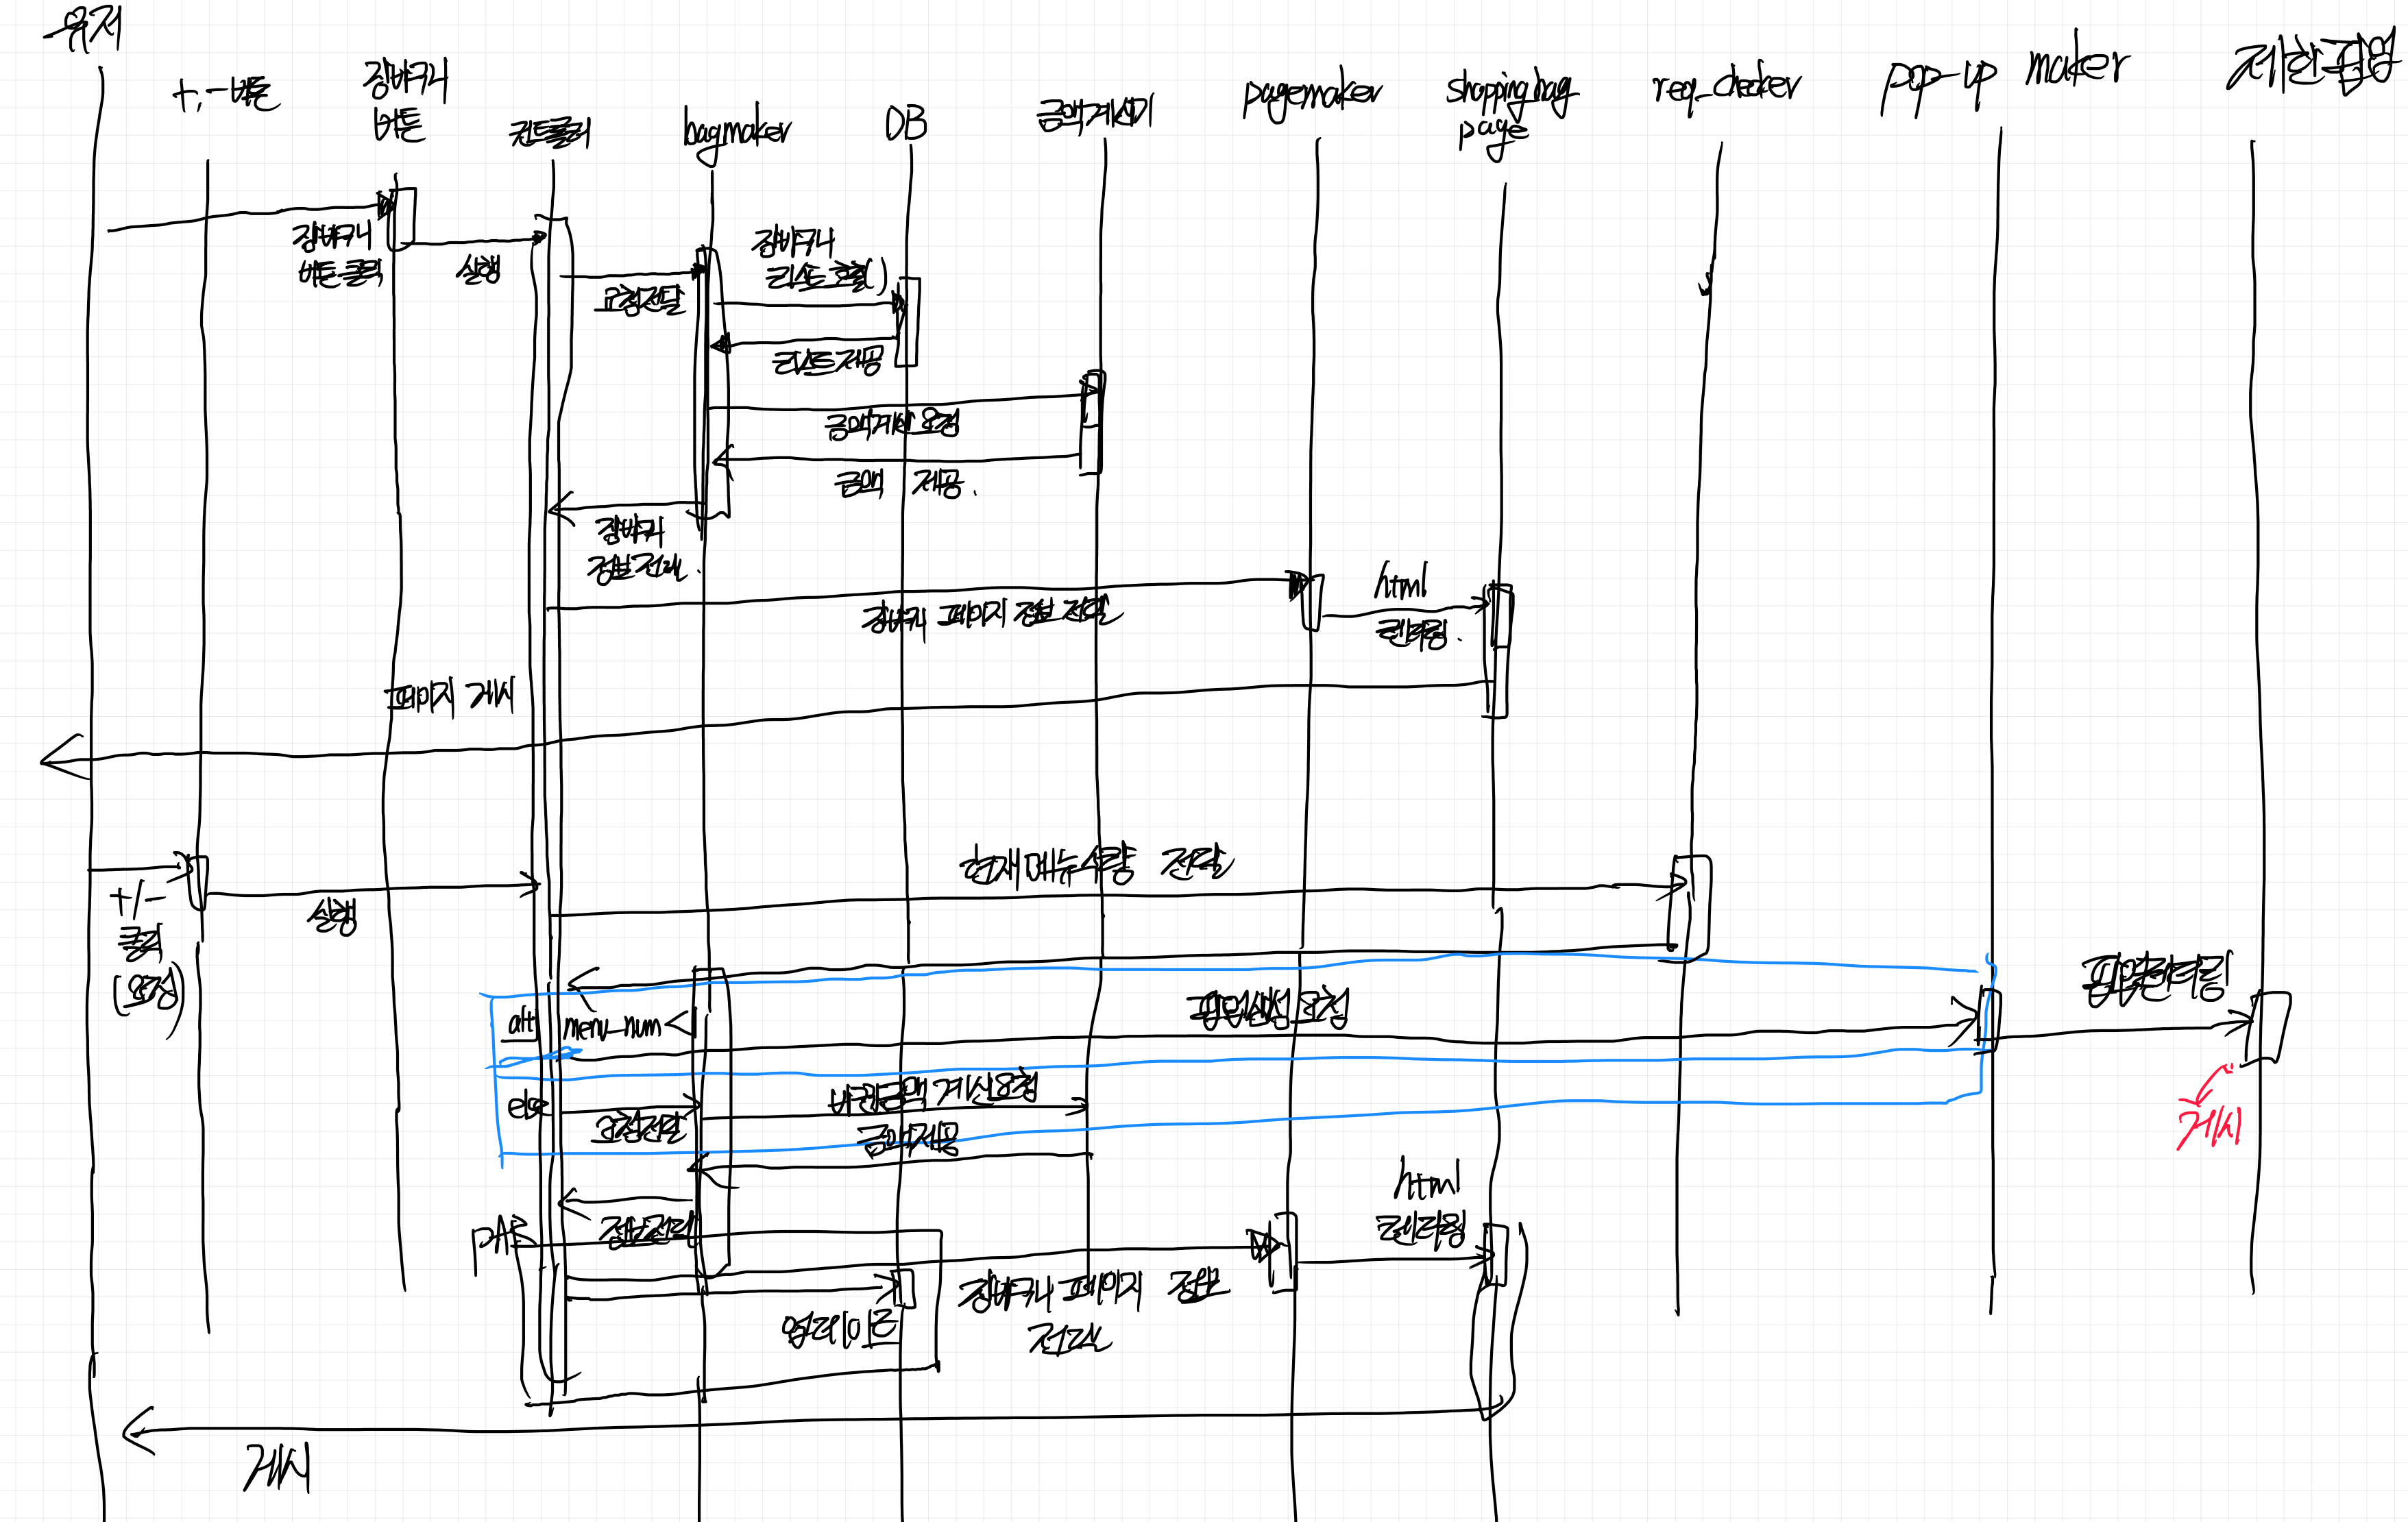 유저
+,-버튼
장바구니
버튼
컨트롤러
bagmaker
DB
금액계산기
pagemaker
shopping_bag
page
req_checker
pop-up maker
제한팝업
장바구니
버튼클릭
실행
요청전달
장바구니
리스트호출()
리스트제공
금액계산요청
금액 제공.
장바구니
정보전달.
장바구니 페이지 정보 전달
html
렌더링.
페이지 게시
+/-
클릭
(요청)
실행
현재메뉴수량 전달
alt
menu_num <
팝업생성요청
팝업렌더링
게시
else
요청전달
바뀐금액계산요청
금액제공
정보전달
par
업데이트
장바구니 페이지 정보
전달
html
렌더링
게시